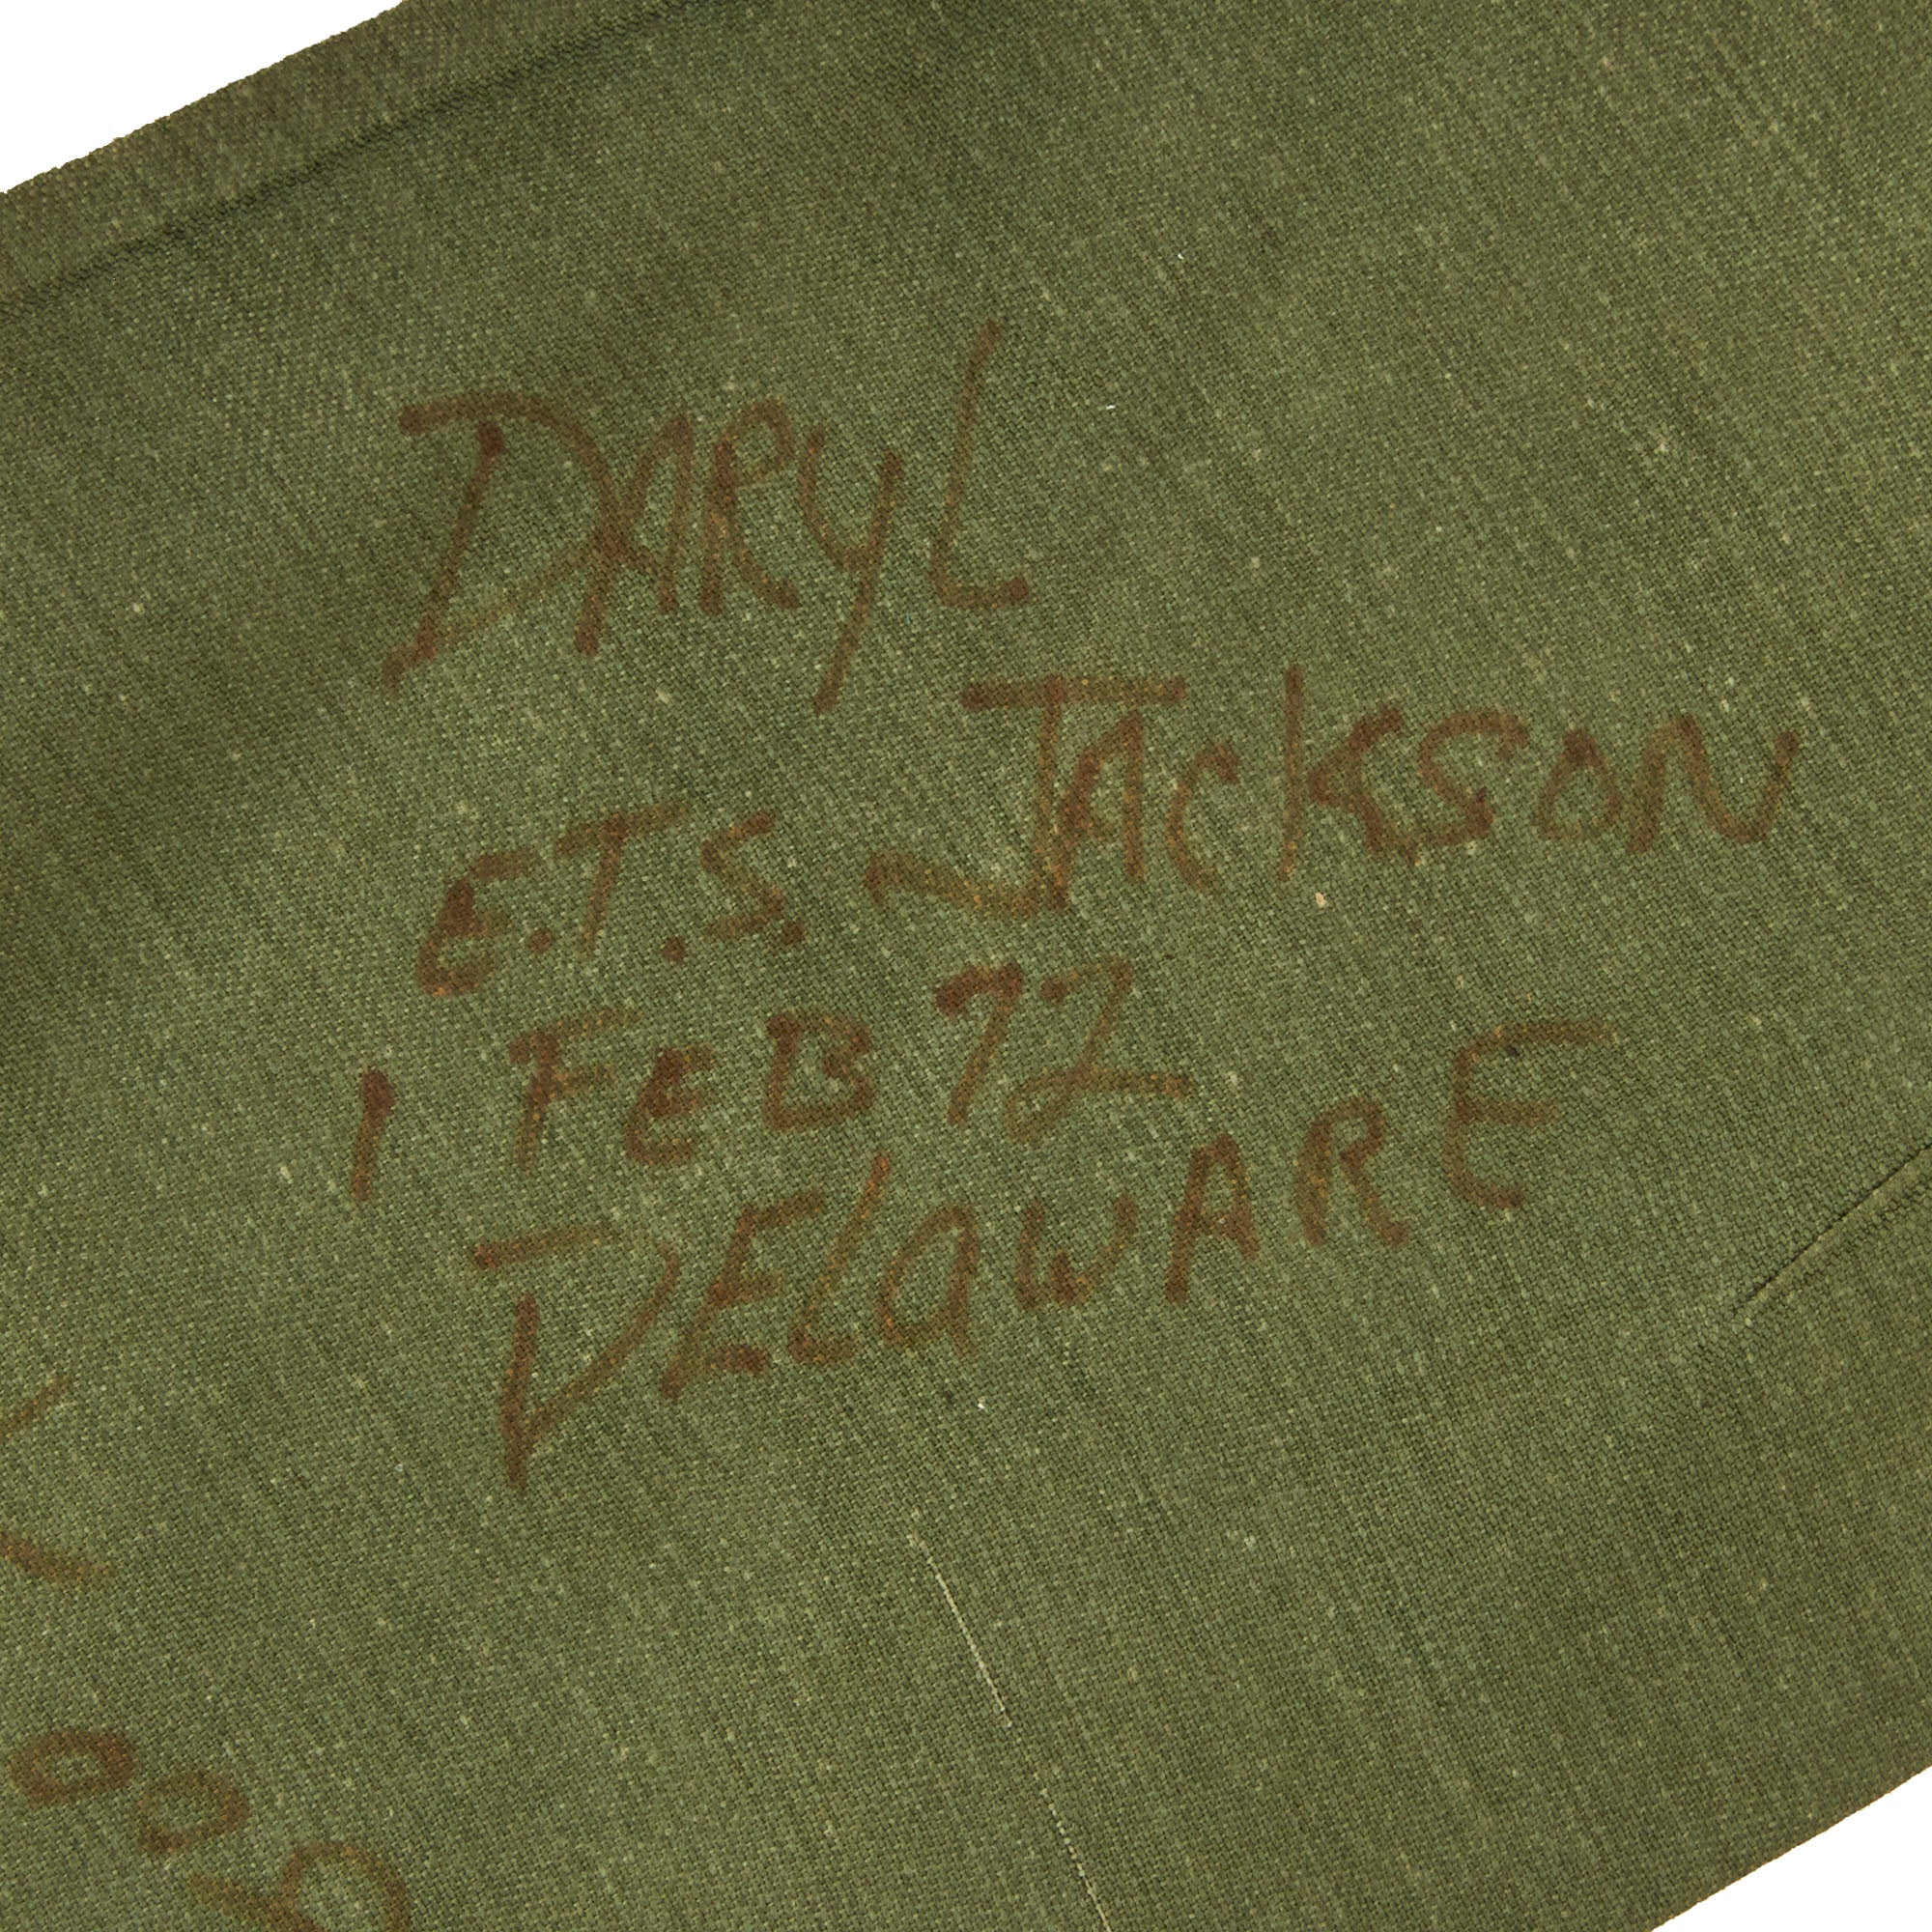 DARYL
JACKSON
E.T.S.
1 FEB 72
DELAWARE